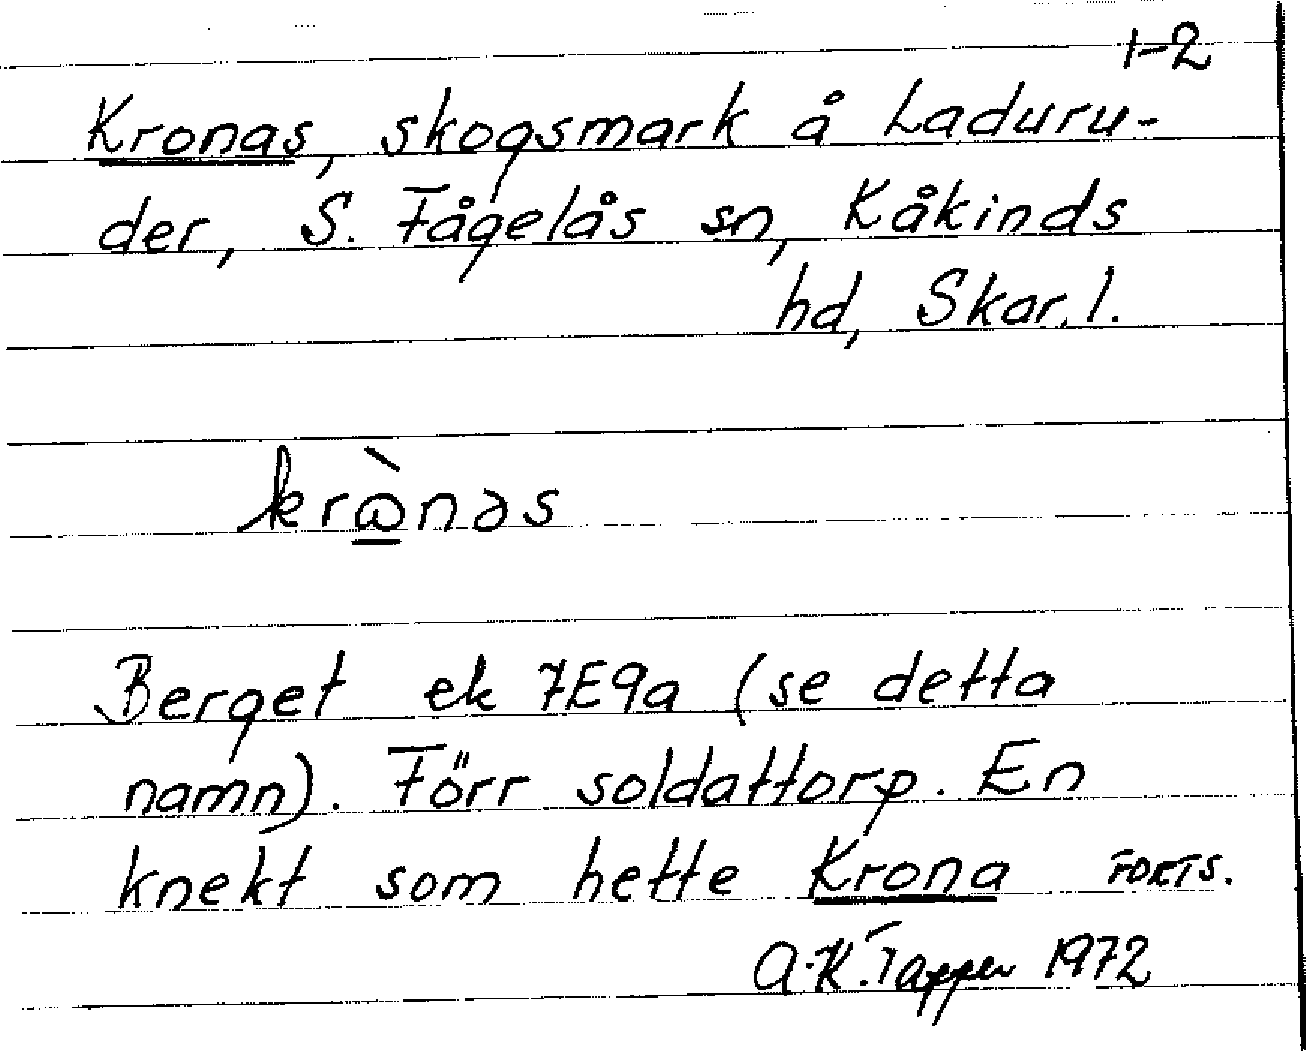 1-2
Kronas, skogsmark å Laduru-
der, S. Fågelås sn, Kåkinds
hd, Skar. l.
krὼnəs
Berget ek 7E9a (se detta
namn). Förr soldattorp. En
knekt som hette Krona FORTS.
A-K. Tapper 1972